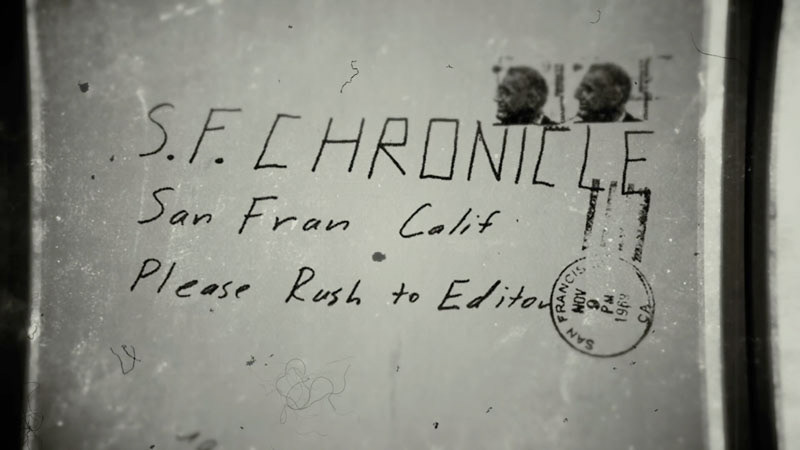 S.F. CHRONICLE
San Fran Calif
Please Rush to Editor
SAN FRANCISCO CA
NOV
9
PM
1969